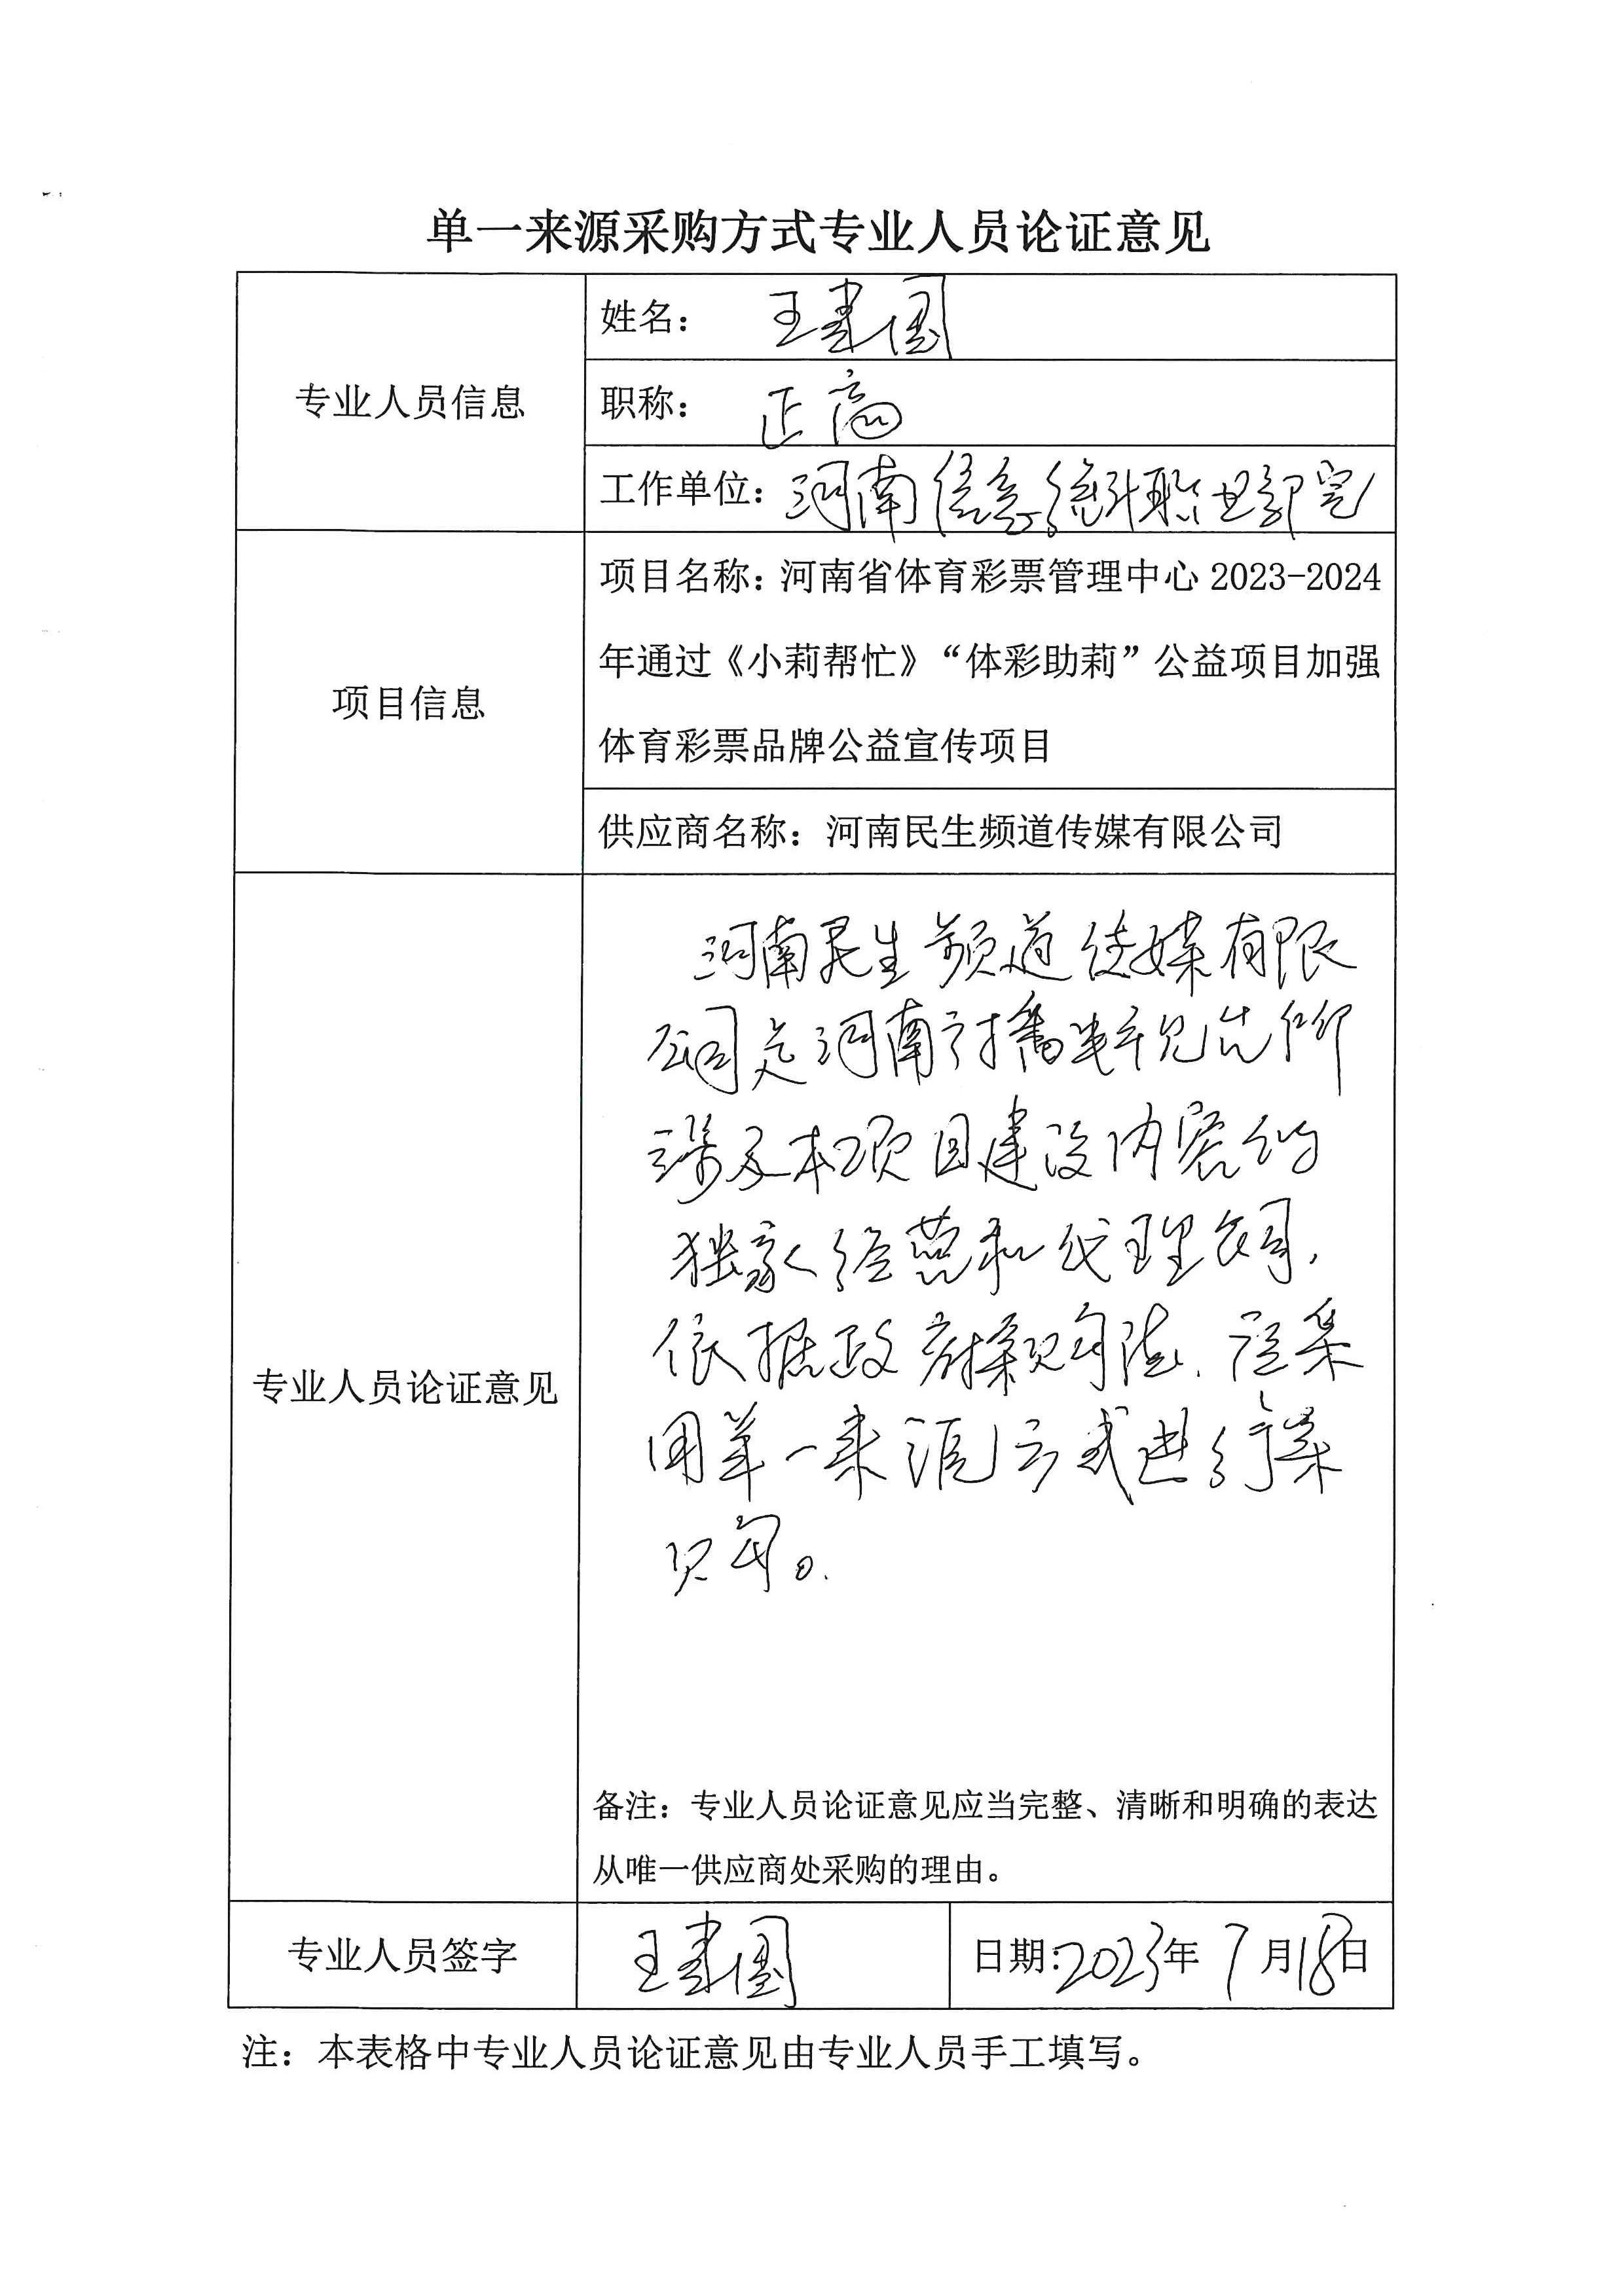 单一来源采购方式专业人员论证意见
专业人员信息
姓名： 王建国
职称： 正高
工作单位：河南信息统计职业学院
项目信息
项目名称：河南省体育彩票管理中心 2023-2024
年通过《小莉帮忙》“体彩助莉”公益项目加强
体育彩票品牌公益宣传项目
供应商名称：河南民生频道传媒有限公司
专业人员论证意见
河南民生频道传媒有限
公司是河南广播电视台
涉及本项目建设内容的
独家经营和代理公司，
依据政府采购法，应采
用单一来源方式进行采
购。
备注：专业人员论证意见应当完整、清晰和明确的表达
从唯一供应商处采购的理由。
专业人员签字
王建国
日期：2023年 7月18日
注：本表格中专业人员论证意见由专业人员手工填写。